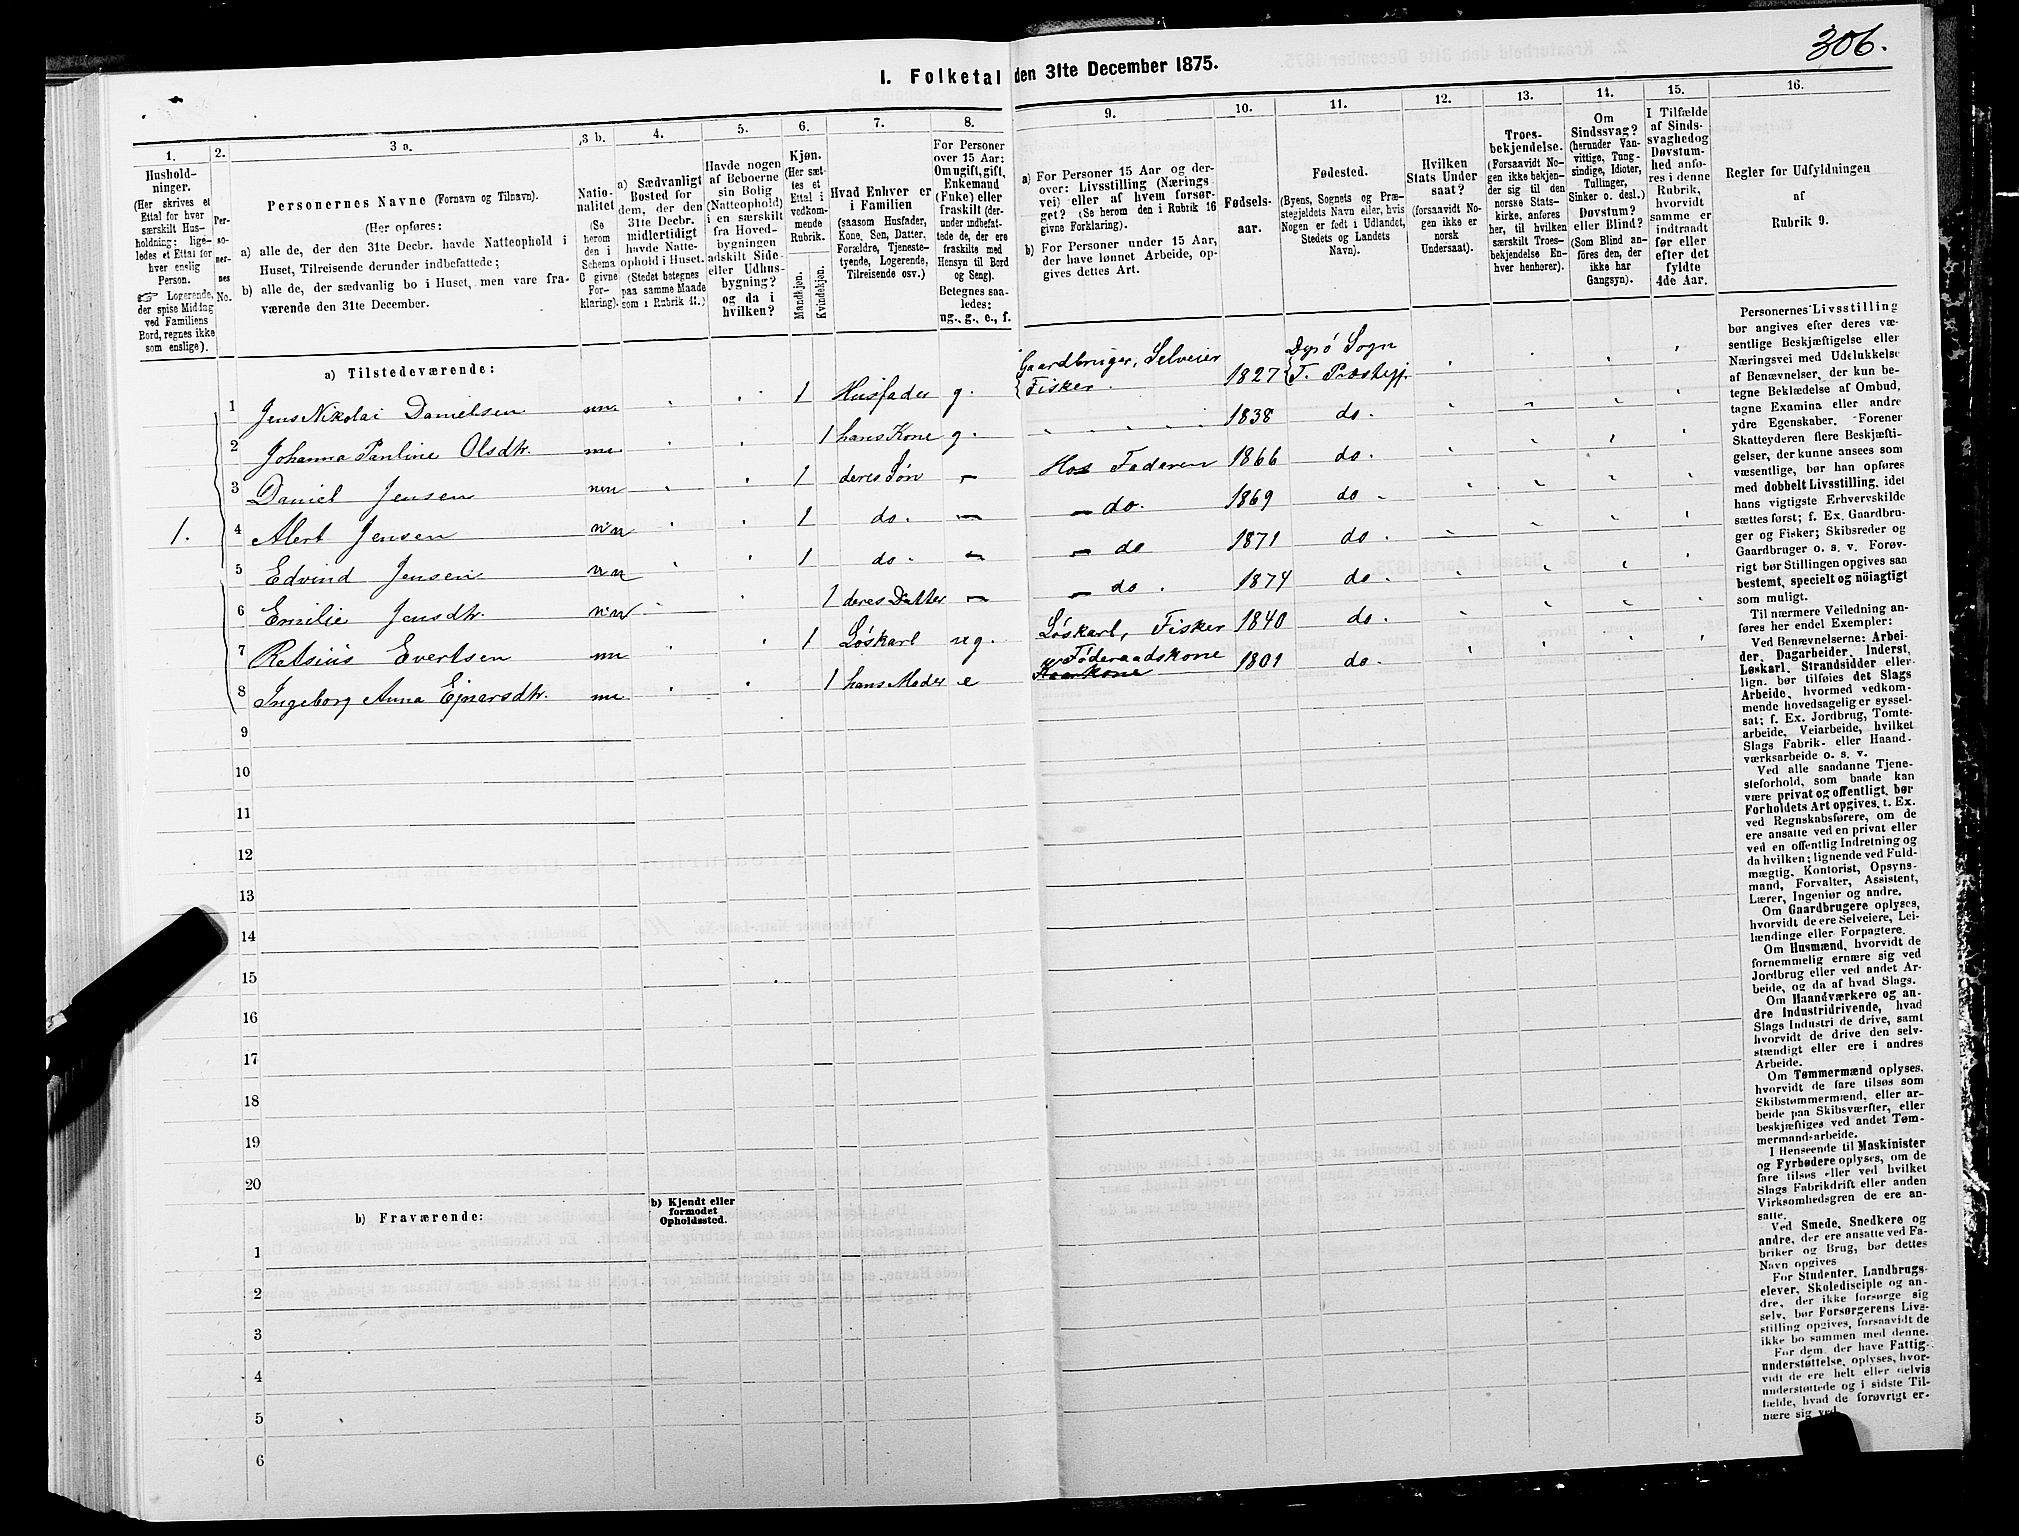 306.
I. Folketal den 31te December 1875.
1.
Hushold-
ninger.
(Her skrives et
Ettal for hver
særskilt Hus-
holdning; lige-
ledes et Ettal for
hver enslig
Person.
☞ Logerende,
der spise Middag
ved Familiens
Bord, regnes ikke
som enslige).
2.
Per-
so-
ner-
nes
No.
3 a.
Personernes Navne (Fornavn og Tilnavn).
(Her opføres:
a) alle de, der den 31te Decbr. havde Natteophold i
Huset, Tilreisende derunder indbefattede;
b) alle de, der sædvanlig bo i Huset, men vare fra-
værende den 31te December.
3 b.
Natio-
nalitet
(Se
herom
den i
Schema
C givne
For-
klaring).
4.
a) Sædvanligt
Bosted for
dem, der den
31te Decbr.
midlertidigt
havde Natte-
ophold i Huset.
(Stedet betegnes
paa samme Maade
som i Rubrik 11.)
5.
Havde nogen
af Beboerne
sin Bolig
(Natteophold)
i en særskilt
fra Hoved-
bygningen
adskilt Side-
eller Udhus-
bygning?
og da i
hvilken?
6.
Kjøn.
(Her sæt-
tes et
Ettal i
vedkom-
mende
Rubrik.
Mandkjøn.
Kvindekjøn.
7.
Hvad Enhver er
i Familien
(saasom Husfader,
Kone, Søn, Datter,
Forældre, Tjeneste-
tyende, Logerende,
Tilreisende osv.)
8.
For Personer
over 15 Aar:
Om ugift, gift,
Enkemand
(Enke) eller
fraskilt (der-
under indbefat-
tede de, der ere
fraskilte med
Hensyn til Bord
og Seng).
Betegnes saa-
ledes:
ug., g., e., f.
9.
a) For Personer 15 Aar og der-
over: Livsstilling (Nærings
vei) eller af hvem forsør-
get? (Se herom den i Rubrik 16
givne Forklaring).
b) For Personer under 15 Aar,
der have lønnet Arbeide, op-
gives dettes Art.
10.
Fødsels-
aar.
11.
Fødested.
(Byens, Sognets og Præ-
stegjeldets Navn eller, hvis
Nogen er født i Udlandet,
Stedets og Landets
Navn).
12.
Hvilken
Stats Under
saat?
(forsaavidt No-
gen ikke er
norsk
Undersaat).
13.
Troes-
bekjendelse.
(Forsaavidt No-
gen ikke bekjen-
der sig til den
norske Stats-
kirke, anføres
her, til hvilken
særskilt Troes-
bekjendelse En-
hver henhorer).
14.
Om
Sindssvag?
(herunder Van-
vittige, Tung-
sindige, Idioter,
Tullinger,
Sinker o. desl.)
Døvstum?
eller Blind?
(Som Blind an-
føres den, der
ikke har
Gangsyn).
15.
I Tilfælde
af Sinds-
svaghed og
Døvstum-
hed anfø-
res i denne
Rubrik,
hvorvidt
samme er
indtraadt
før eller
efter det
fyldte
4de Aar.
16.
Regler for Udfyldningen
af
Rubrik 9.
a) Tilstedeværende:
1 Jens Nikolai Danielsen nn 1 Husfader g. Gaardbruger, Selveier Fisker. 1827 Dyrø Sogn T. Præstegj.
2 Johanna Pauline Olsdtr. nn 1 hans Kone g. 1838 do.
3 Daniel Jensen nn 1 deres Søn Hos Faderen 1866 do.
1. 4 Alert Jensen nn 1 do. do. 1869 do
5 Edvind Jensen nn 1 do. do 1871 do.
6 Emilie Jensdtr. nn 1 deres Datter do. 1874 do.
7 Retsius Evertsen nn 1 Løskarl ug. Løskarl, Fisker 1840 do.
8 Ingeborg Anna Ejnersdtr. nn 1 hans Moder e Føderaadskone 1801 do.
9
10
11
12
13
14
15
16
17
18
19
20
b) Fraværende:
b) Kjendt eller
formodet
Opholdssted.
1
2
3
4
5
6
Personernes Livsstilling
bør angives efter deres væ-
sentlige Beskjæftigelse eller
Næringsvei med Udelukkelse
af Benævnelser, der kun be-
tegne Beklædelse af Ombud,
tagne Examina eller andre
ydre Egenskaber. Forener
Skatteyderen flere Beskjæfti-
gelser, der kunne ansees som
væsentlige, bør han opføres
med dobbelt Livsstilling, idet
hans vigtigste Erhvervskilde
sættes først; f. Ex. Gaardbru-
ger og Fisker; Skibsreder og
Gaardbruger o. s. v. Forøv-
rigt bør Stillingen opgives saa
bestemt, specielt og nöiagtigt
som muligt.
Til nærmere Veiledning an-
føres her endel Exempler:
Ved Benævnelserne: Arbei-
der, Dagarbeider, Inderst,
Løskarl, Strandsidder eller
lign. bør tilføies det Slags
Arbeide, hvormed vedkom-
mende hovedsagelig er syssel-
sat; f. Ex. Jordbrug, Tomte-
arbeide, Veiarbeide, hvilket
Slags Fabrik- eller Haand-
værksarbeide o. s. v.
Ved alle saadanne Tjene-
steforhold, som baade kan
være privat og offentligt, bør
Forholdets Art opgives, t. Ex.
ved Regnskabsførere, om de
ere ansatte ved en privat eller
ved en offentlig Indretning og
da hvilken; lignende ved Fuld-
mægtig, Kontorist, Opsyns-
mand, Forvalter, Assistent,
Lærer, Ingeniør og andre.
Om Gaardbrugere oplyses,
hvorvidt de ere Selveiere, Lei-
lændinge eller Forpagtere.
Om Husmænd, hvorvidt de
fornemmelig ernære sig ved
Jordbrug eller ved andet Ar-
beide, og da af hvad Slags.
Om Haandværkere og an-
dre Industridrivende, hvad
Slags Industri de drive, samt
hvorvidt de drive den selv-
stændigt eller ere i andres
Arbeide.
Om Tømmermænd oplyses,
hvorvidt de fare tilsøs som
Skibstømmermænd, eller ar-
beide paa Skibsværfter, eller
beskjæftiges ved andet Tøm-
mermandsarbeide.
I Henseende til Maskinister
og Fyrbødere oplyses, om de
fare tilsøs eller ved hvilket
Slags Fabrikdrift eller anden
Virksomhedsgren de ere an-
satte.
Ved Smede, Snedkere og
andre, der ere ansatte ved Fa-
briker og Brug, bør dettes
Navn opgives
For Studenter, Landbrugs-
elever, Skoledisciple og an-
dre, der ikke forsørge sig
selv, bør Forsørgerens Livs-
stilling opgives, forsaavidt de
ikke bo sammen med denne.
For dem, der have Fattig-
understøttelse, oplyses, hvor-
vidt de ere helt eller delvis
understøttede og i sidste Til-
fælde, hvad de forøvrigt er-
nære sig ved